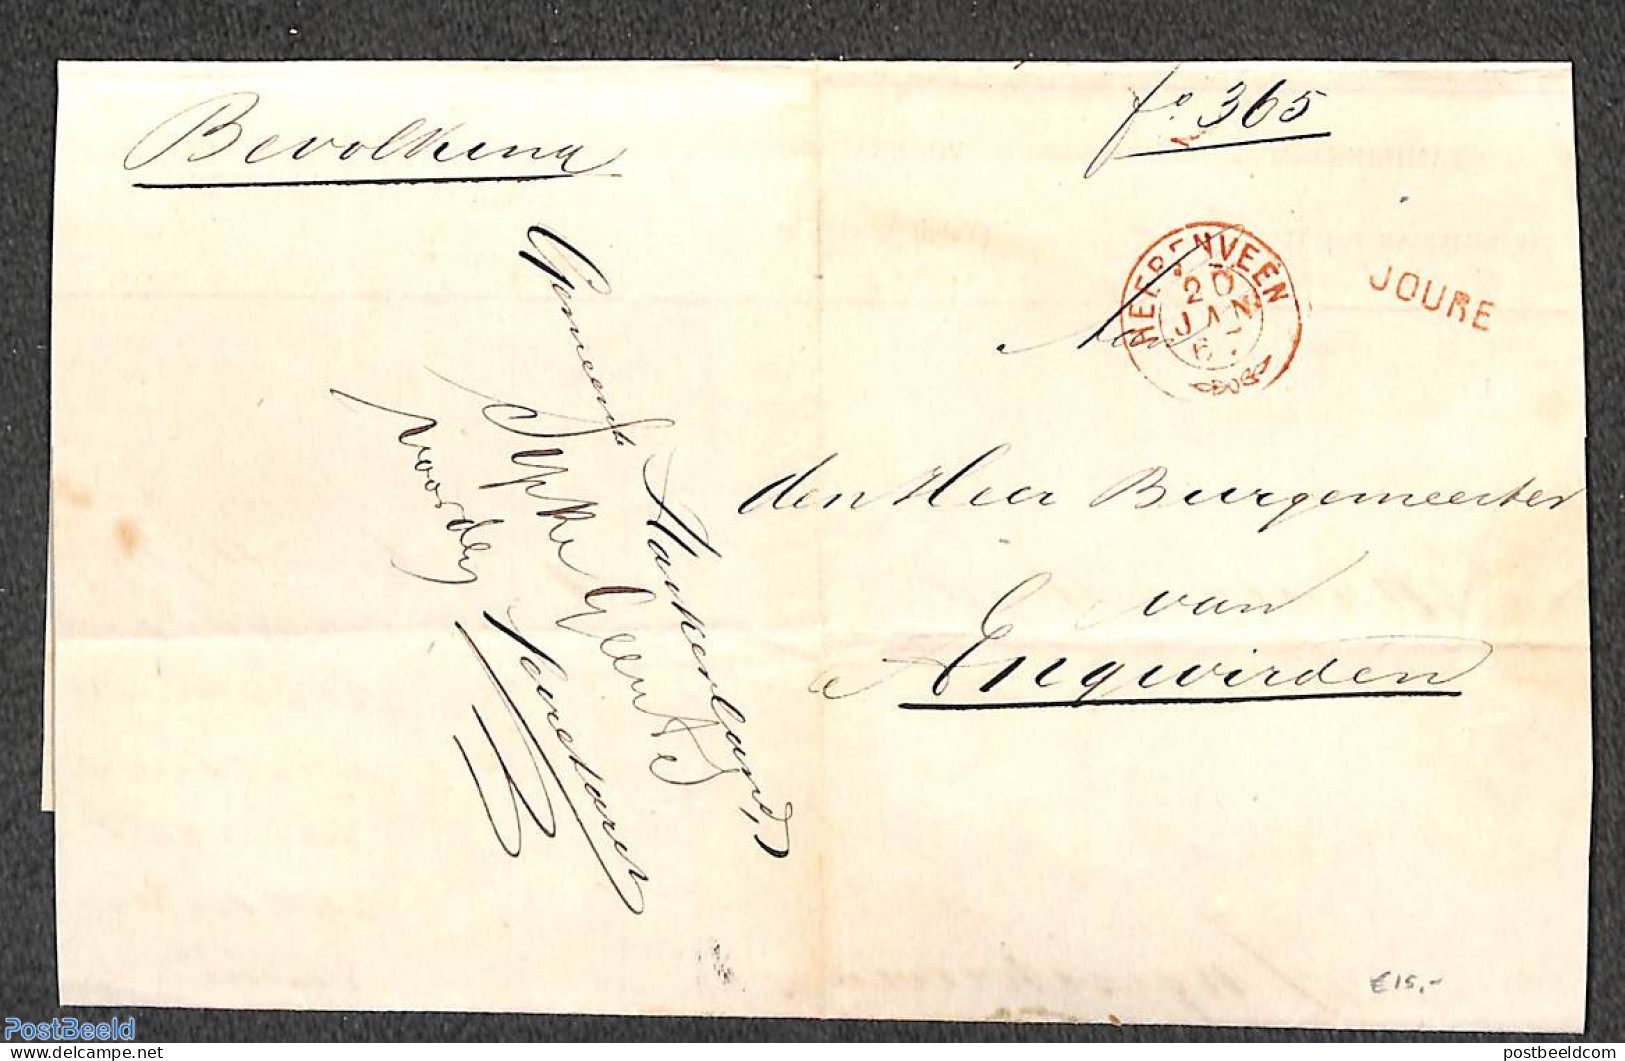 Bevolking
fo. 365
HEERENVEEN
20
JAN
6
JOURE
Aan
den Heer Burgemeester
van
Engwirden
Gemeente Haskerland,
Sypke Geerts
€15,-
PostBeeld
postbeeldcom